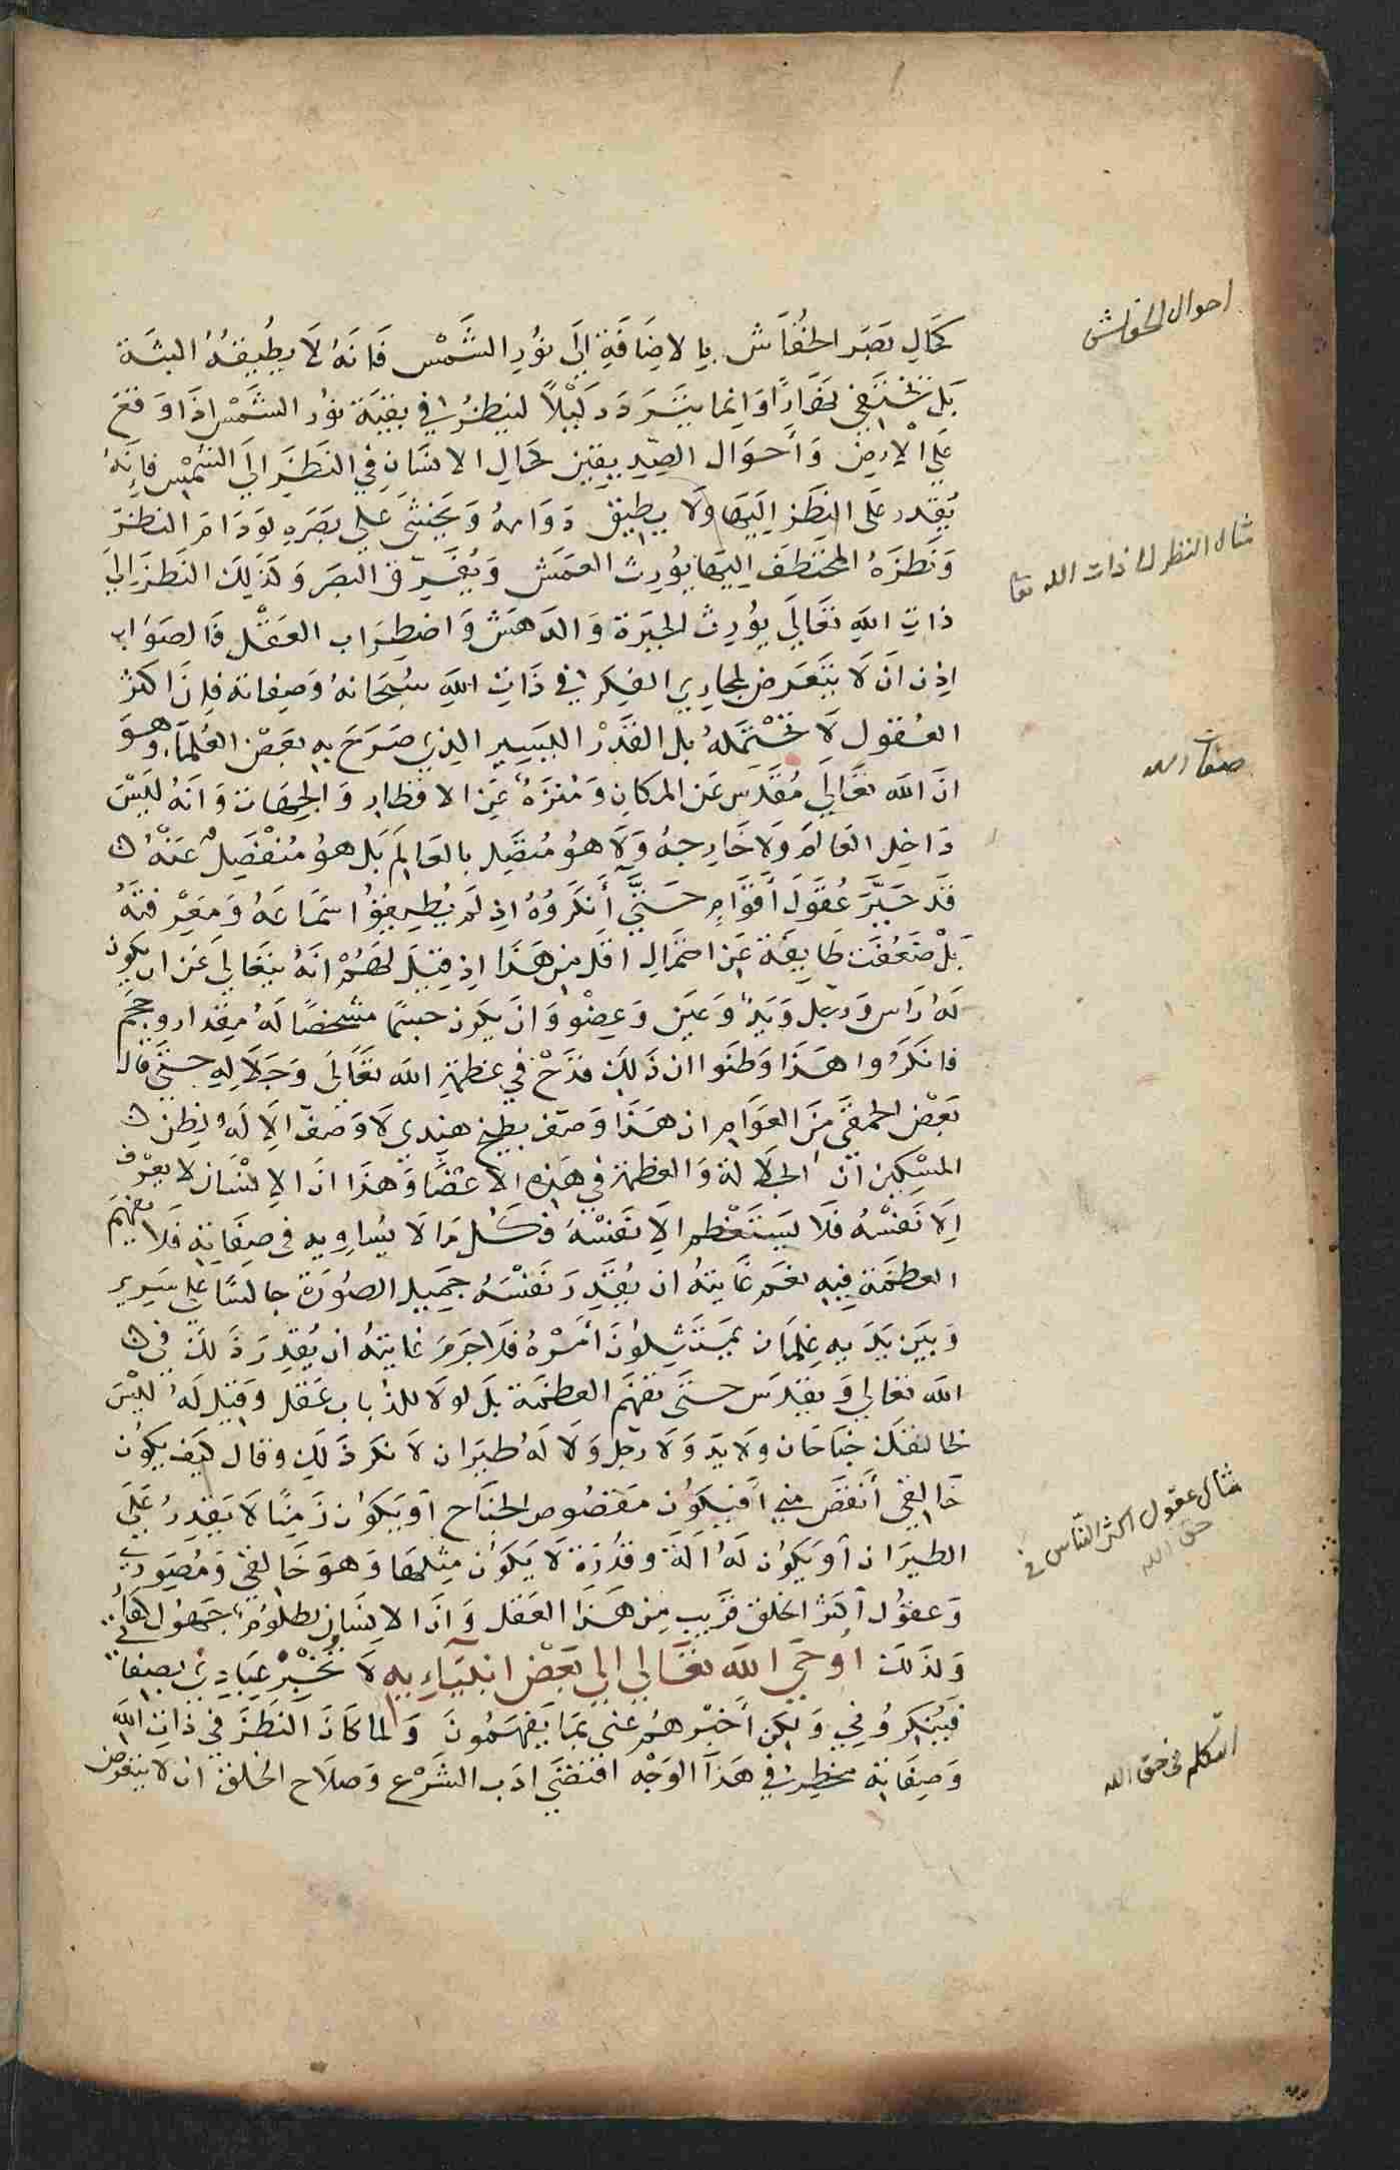 كحال بصر الخفاش بالاضافة الى نور الشمس فانه لا يطيقه البتة
بل تختفي نهارا وانما يتردد ليلا لينظر في بقية نور الشمس اذا وقع
على الارض واحوال الصديقين كحال الانسان في النظر الى الشمس فانه
يقدر على النظر اليها ولا يطيق دوامه ويخشى على بصره لو دام النظر
ونظره المختطف اليها يورث العمش ويفرق البصر وكذلك النظر الى
ذات الله تعالى يورث الحيرة والدهش واضطراب العقل فالصواب
اذن ان لا يتعرض لمجاري الفكر في ذات الله سبحانه وصفاته فان اكثر
العقول لا تحتمله بل القدر اليسير الذي صرح به بعض العلماء وهو
ان الله تعالى مقدس عن المكان ومنزه عن الاقطار والجهات وانه ليس
داخل العالم ولا خارجه ولا هو متصل بالعالم بل هو منفصل عنه
قد حير عقول اقوام حتى انكروه اذ لم يطيقوا سماعه ومعرفته
بل ضعفت طايفة عن احتمال اقل من هذا اذ قيل لهم انه يتعالى عن ان يكون
له راس ورجل ويد وعين وعضو وان يكون جسما مشخصا له مقدار وحجم
فانكروا هذا وظنوا ان ذلك قدح في عظمة الله تعالى وجلاله حتى قال
بعض الحمقى من العوام ان هذا وصف بطيخ هندي لا وصف الاله لظن
المسكين ان الجلالة والعظمة في هذه الاعضا وهذا ان الانسان لا يعرف
الا نفسه فلا يستعظم الا نفسه فكل ما لا يساويه في صفاته فلا يفهم
العظمة فيه نعم غايته ان يقدر نفسه جميل الصورة جالسا على سرير
وبين يديه غلمان يمتثلون امره فلا جرم غايته ان يقدر ذلك في
الله تعالى وتقدس حتى تفهم العظمة بل لو لا للذباب عقل وقيل له ليس
لخالقك جناحان ولا يد ولا رجل ولا له طيران لانكر ذلك وقال كيف يكون
خالقي انقص مني افيكون مقصوص الجناح او يكون زمنا لا يقدر على
الطيران او يكون له الة وقدرة لا يكون مثلها وهو خالقي ومصوري
وعقول اكثر الخلق قريب من هذا العقل وان الانسان لظلوم جهول كفار
ولذلك اوحى الله تعالى الى بعض انبيايه لا تخبر عبادي بصفاتي
فينكروني ولكن اخبرهم عني بما يفهمون ولما كان النظر في ذات الله
وصفاته مخطرا في هذا الوجه اقتضى ادب الشرع وصلاح الخلق ان لا يتعرض
احوال الخفاش
مثال النظر لذات الله تعا
صفات الله
مثال عقول اكثر الناس في
حق الله
التكلم في حق الله